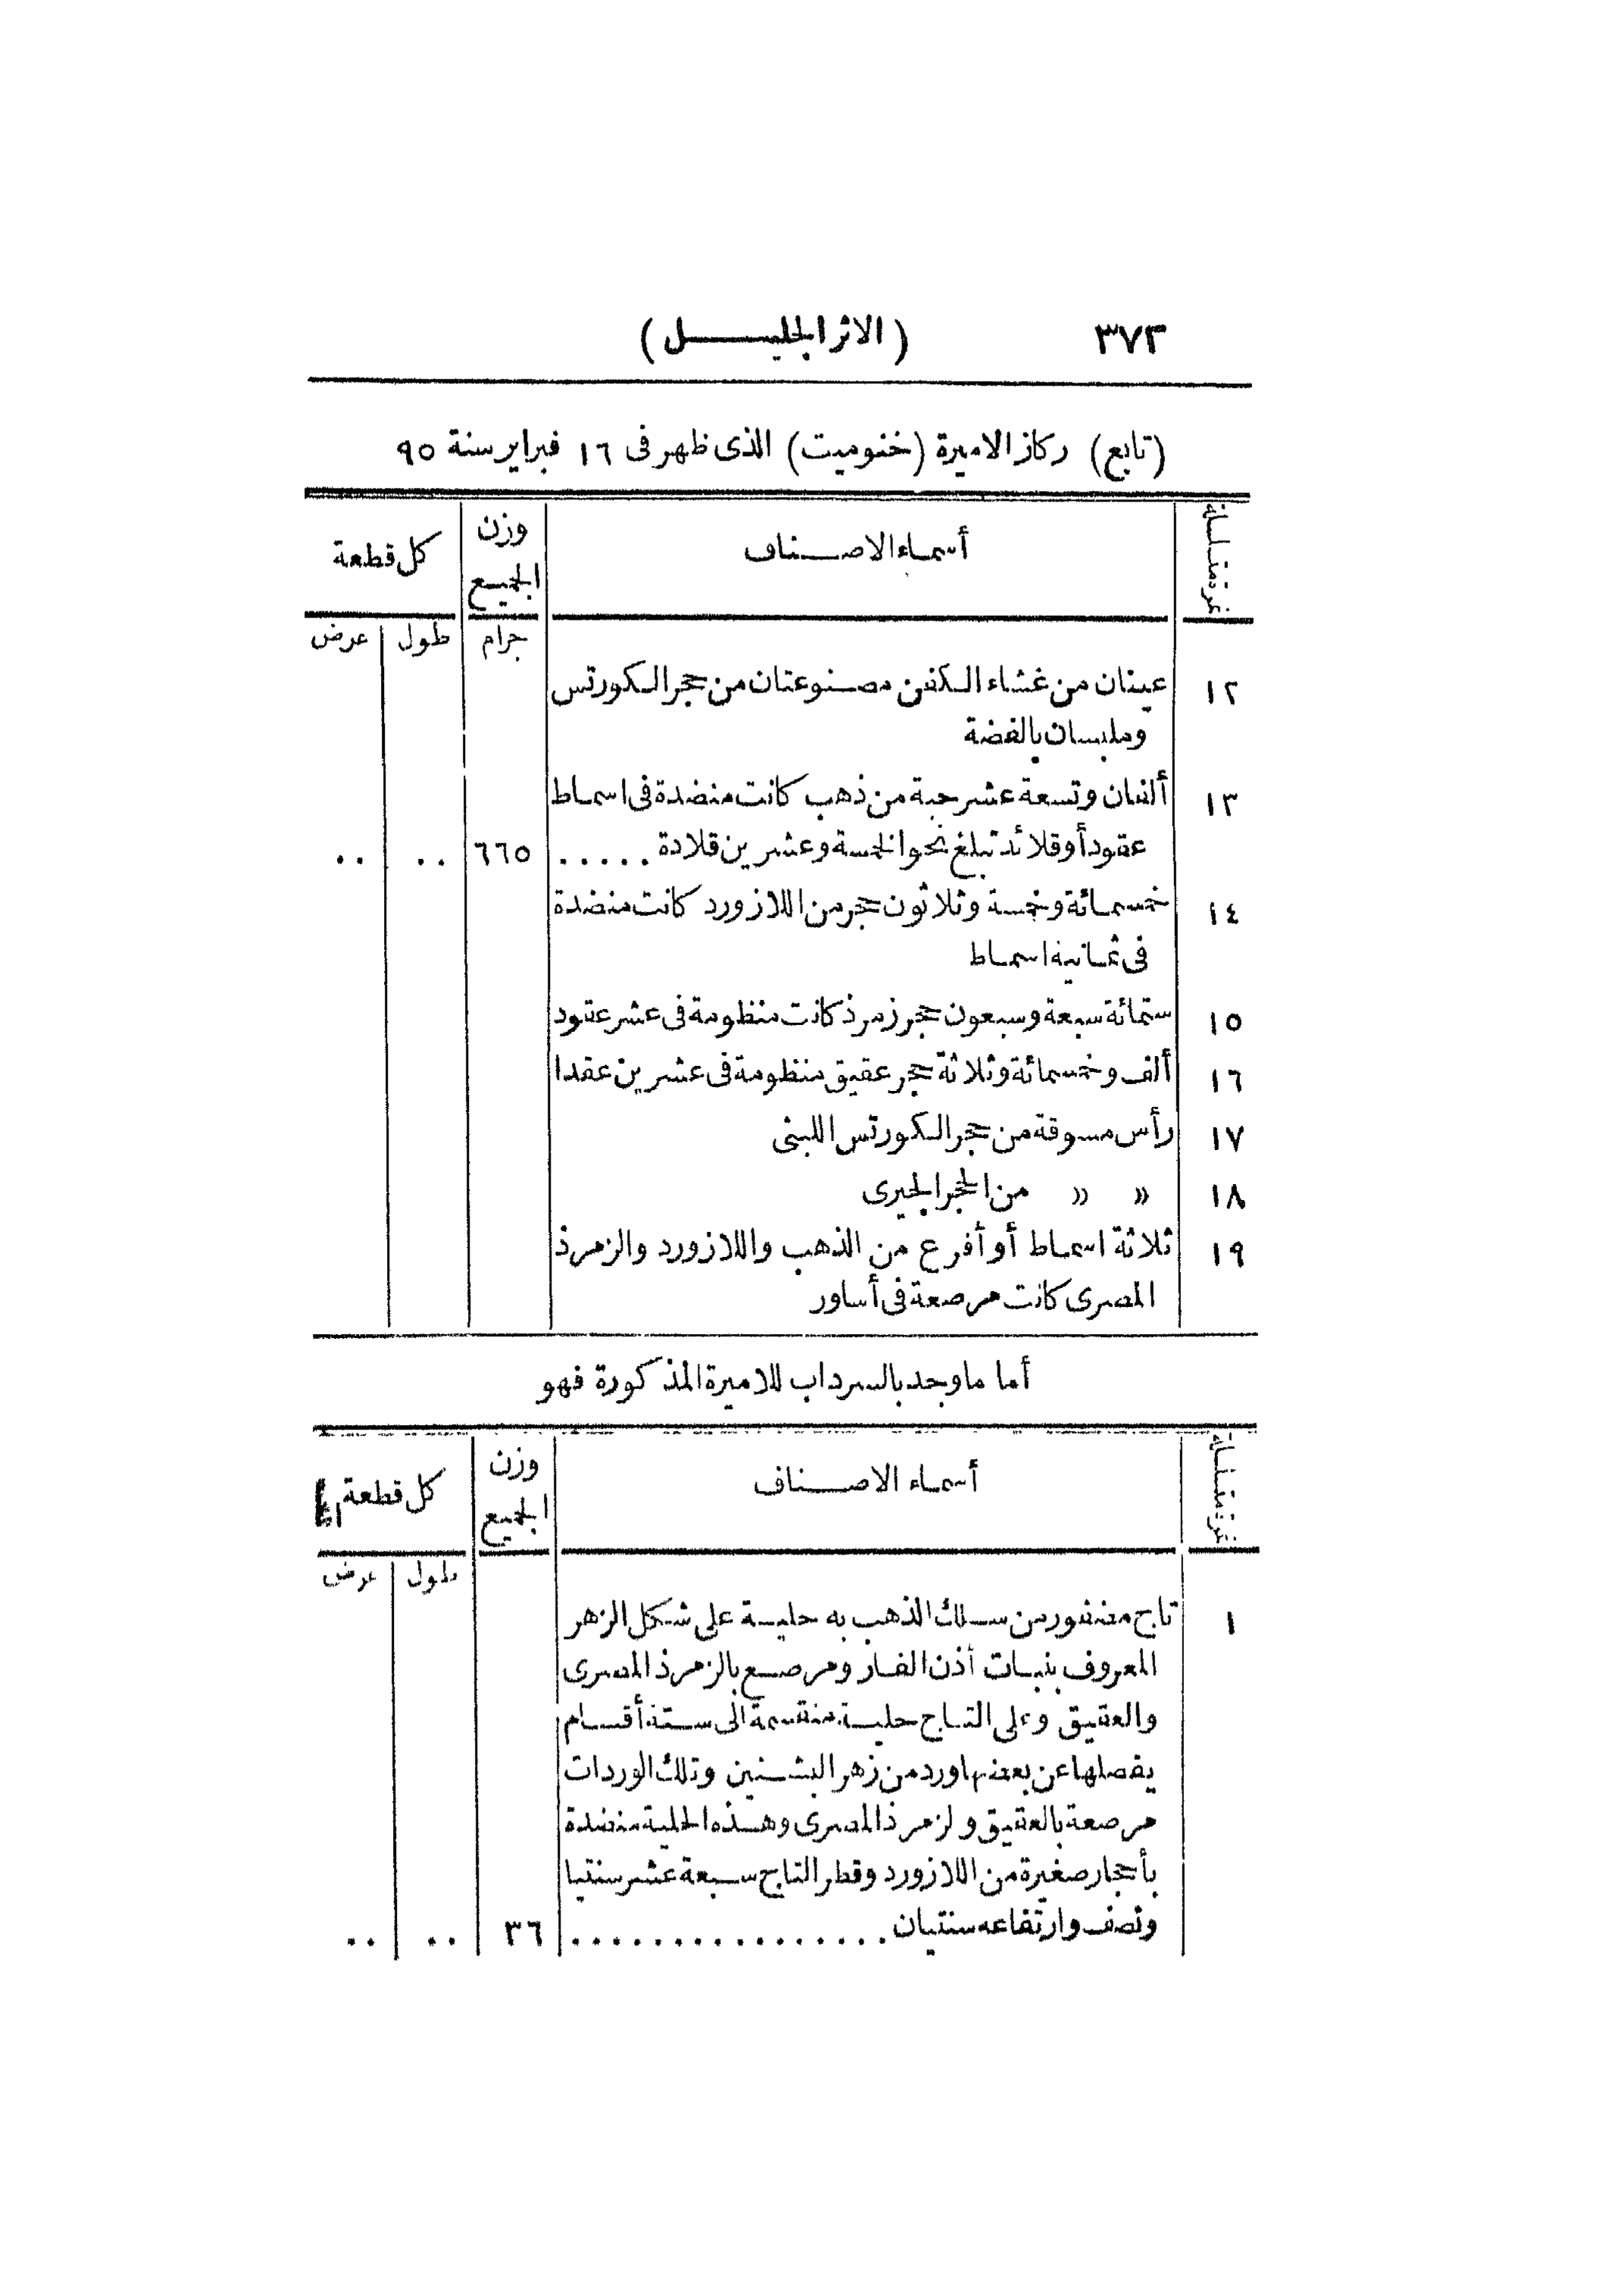 ٣٧٣ (الاثر الجليل)
(تابع) ركاز الاميرة (خنوميت) الذى ظهر فى ١٦ فبراير سنة ٩٥
نمرة متسلسلة أسماء الاصناف وزن الجميع كل قطعة
جرام طول عرض
١٢ عينان من غشاء الكفن مصنوعتان من حجر الكورتس
وملبسان بالفضة
١٣ ألفان وتسعة عشر حبة من ذهب كانت منضدة فى اسماط
عقود أو قلائد تبلغ نحو الخمسة وعشرين قلادة ..... ٦٦٥ .. ..
١٤ خمسمائة وخمسة وثلاثون حجر من اللازورد كانت منضدة
فى ثمانية اسماط
١٥ ستمائة سبعة وسبعون حجر زمرذ كانت منظومة فى عشر عقود
١٦ ألف وخمسمائة وثلاثة حجر عقيق منظومة فى عشرين عقدا
١٧ رأس مسوقة من حجر الكورتس اللبنى
١٨ » » من الحجر الجيرى
١٩ ثلاثة اسماط أو أفرع من الذهب واللازورد والزمرذ
المصرى كانت مرصعة فى أساور
أما ما وجد بالسرداب للاميرة المذكورة فهو
نمرة متسلسلة أسماء الاصناف وزن الجميع كل قطعة
طول عرض
١ تاج مضفور من سلك الذهب به حلية على شكل الزهر
المعروف بنبات أذن الفار ومرصع بالزمرذ المصرى
والعقيق وعلى التاج حلية منقسمة الى ستة أقسام
يفصلها عن بعضها ورد من زهر البشنين وتلك الوردات
مرصعة بالعقيق ولزمرذ المصرى وهذه الحلية منضدة
بأحجار صغيرة من اللازورد وقطر التاج سبعة عشر سنتيا
ونصف وارتفاعه سنتيان ................ ٣٦ .. ..